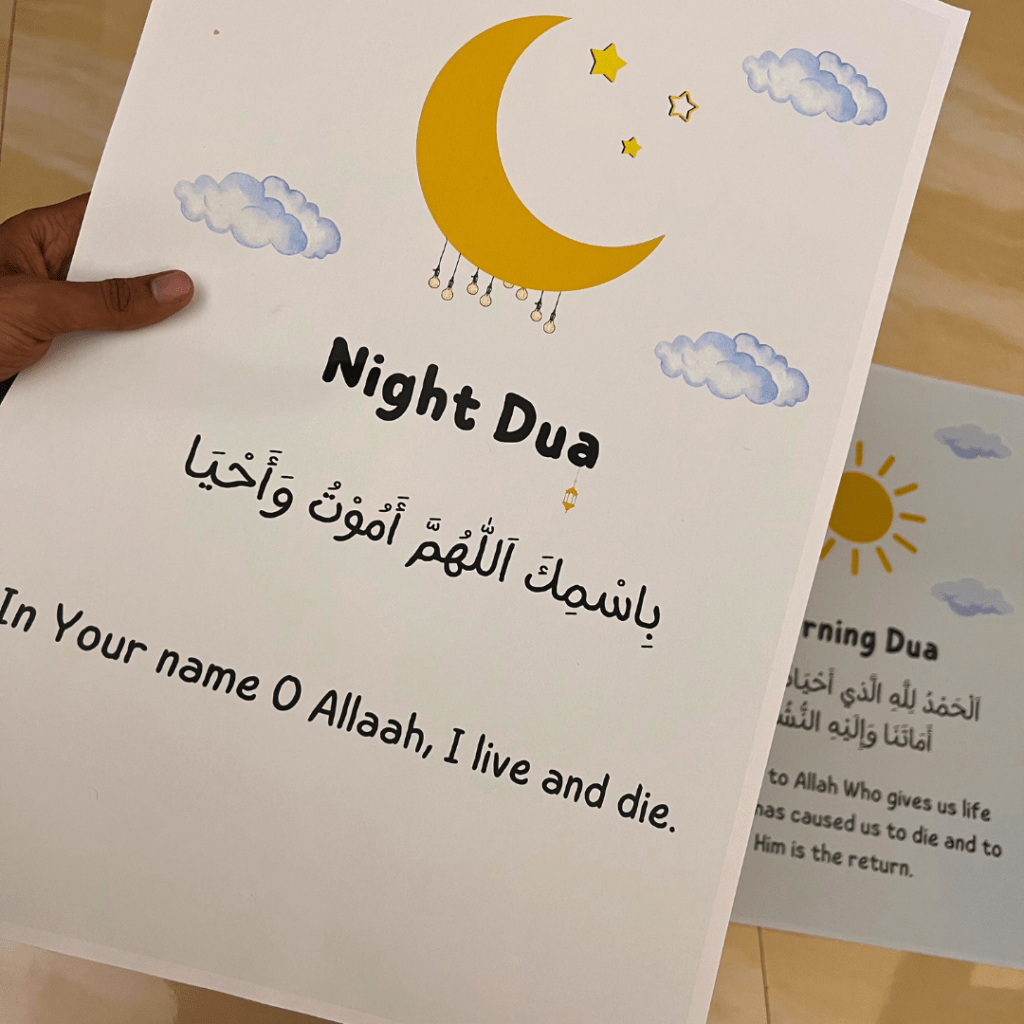 Night Dua
بِاسْمِكَ اَللّٰهُمَّ أَمُوْتُ وَأَحْيَا
In Your name O Allaah, I live and die.
rning Dua
اَلْحَمْدُ لِلَّهِ الَّذِي
أَمَاتَنَا وَإِلَيْهِ
to Allah Who gives us life
has caused us to die and to
Him is the return.